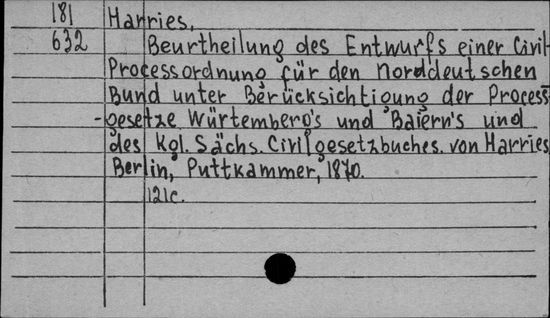 181 Harries,
632 Beurtheilung des Entwurfs einer Civil-
Processordnung für den Norddeutschen
Bund unter Berücksichtigung der Process-
-gesetze Würtemberg's und Baiern's und
des Kgl. Sächs. Civilgesetzbuches. von Harries
Berlin, Puttkammer, 1870.
121c.